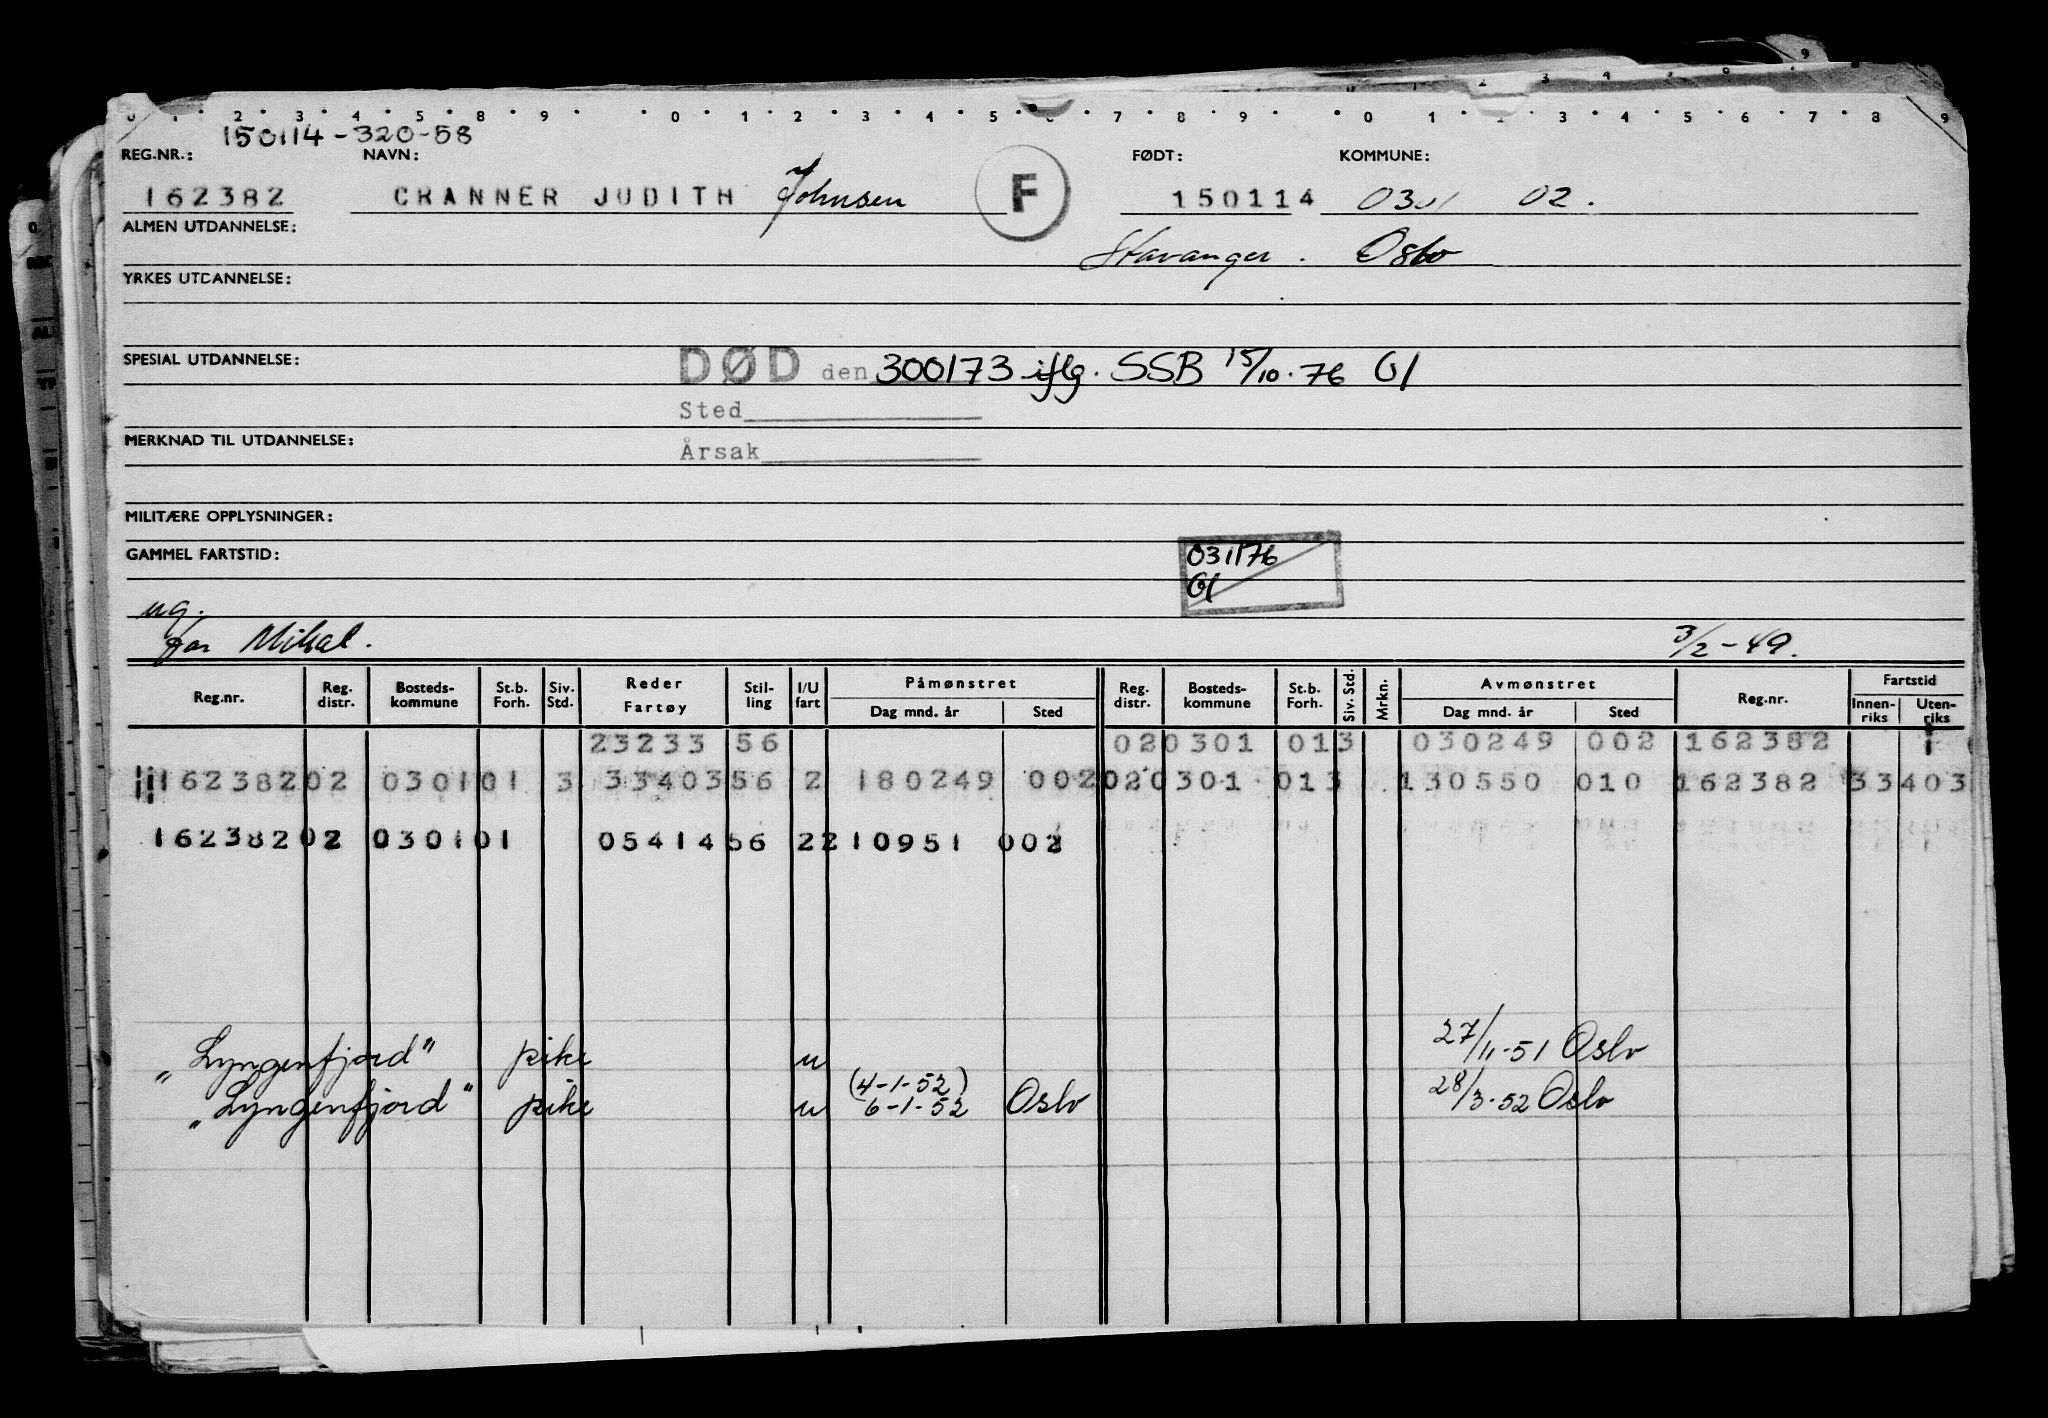 0 1 2 3 4 5 8 9 0 1 2 3 4 5 6 7 8 9 0 1 2 3 4 5 6 7 8 9
150114-320-58
REG.NR.: NAVN: FØDT: KOMMUNE:
162382 CRANNER JUDITH Johnsen F 150114 0301 02.
ALMEN UTDANNELSE: Stavanger. Oslo
YRKES UTDANNELSE:
SPESIAL UTDANNELSE: DØD den 300173 iflg. SSB 15/10.76 Gl
Sted
MERKNAD TIL UTDANNELSE:
Årsak
MILITÆRE OPPLYSNINGER:
GAMMEL FARTSTID: 031176
Gl
ug.
far Mikal. 3/2-49.
Reg.nr. Reg. distr. Bosteds-kommune St.b. Forh. Siv. Std. Reder Fartøy Stil-ling I/U fart Påmønstret Dag mnd. år Sted Reg. distr. Bosteds-kommune St.b. Forh. Siv. Std. Mrkn. Avmønstret Dag mnd. år Sted Reg.nr. Fartstid Innen-riks Uten-riks
23233 56 020301 013 030249 002 162382 1
16238202 030101 3 3340356 2 180249 002020301 013 130550 010 162382 33403
16238202 030101 0541456 2210951 002
"Lyngenfjord" pike u 27/11-51 Oslo
(4-1-52)
"Lyngenfjord" pike u 6-1-52 Oslo 28/3-52 Oslo